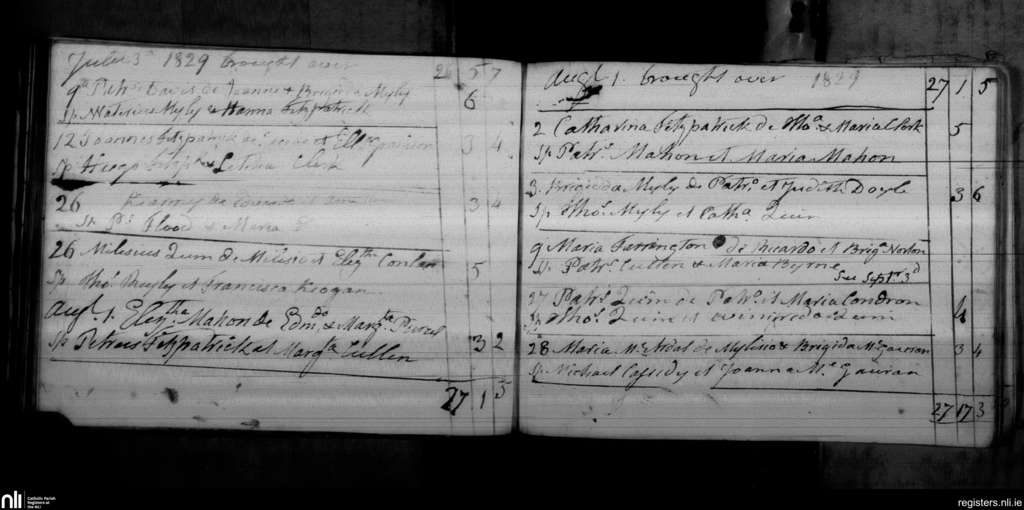 July 3d 1829 brought over 26 5 7
9th Patr. Davis de Joanne & Brigida Myly
Sp. Myly & Hanna Fitzpatrick 6
12 Joannes Fitzpatrick de 3 4
Sp & Letitia Clerk
26 de 3 4
Sp. P. Flood & Maria
26 Milesius Quin de Milisio et Elizth Conlan
Sp. Tho. Reyly et Francisca Keogan 5
Augt 1. Elizth Mahon de Edmdo & Margta
Sp Petrus Fitzpatrick et Margta Cullen 3 2
27 1 5
Augt 1. brought over 1829 27 1 5
2 Catharina Fitzpatrick de Tho. & Maria Cork 5
Sp Patr. Mahon et Maria Mahon
3. Brigida Myly de Patro et Judith Doyle 3 6
Sp Tho. Myly et Catha Quin
9 Maria Farrington de Ricardo et Brigа Norton
Sp. Patr. Cullen & Maria Byrne
See Septr 3d
27 Patr. Quin de Patro et Maria Condron 4
Sp Tho. Quin et Quin
28 Maria Mc Ardal de Mylisio & Brigida Mc Gauran 3 4
Sp. Michael Cassidy et Joanna Mc Gauran
27 17 3
nli
Catholic Parish
Registers at
the NLI
registers.nli.ie